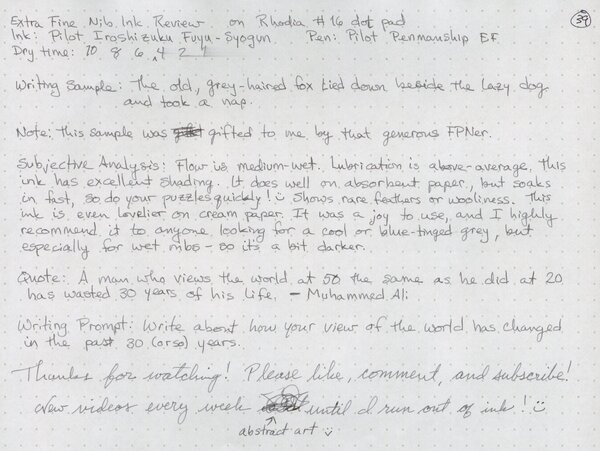 Extra Fine Nib Ink Review on Rhodia #16 dot pad
39
Ink: Pilot Iroshizuku Fuyu-Syogun Pen: Pilot Penmanship EF
Dry time: 10 8 6 4 2 1
Writing Sample: The old, grey-haired fox tied down beside the lazy dog
and took a nap.
Note: This sample was gifted to me by that generous FPNer.
Subjective Analysis: Flow is medium-wet. Lubrication is above-average. This
ink has excellent shading. It does well on absorbent paper, but soaks
in fast, so do your puzzles quickly! Shows rare feathers or wooliness. This
ink is even lovelier on cream paper. It was a joy to use, and I highly
recommend it to anyone looking for a cool or blue-tinged grey, but
especially for wet nibs - so it's a bit darker.
Quote: A man who views the world at 50 the same as he did at 20
has wasted 30 years of his life. - Muhammed Ali
Writing Prompt: Write about how your view of the world has changed
in the past 30 (or so) years.
Thanks for watching! Please like, comment, and subscribe!
New videos every week until I run out of ink!
abstract art